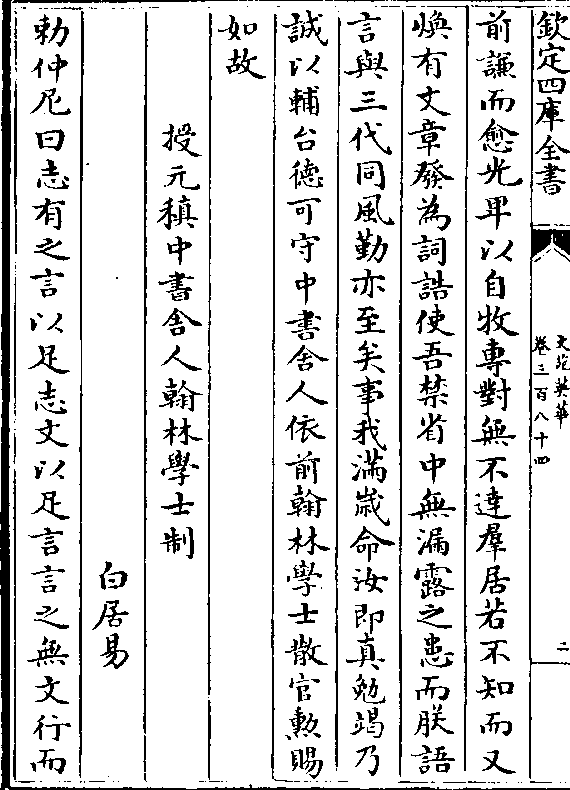 欽定四庫全書
文苑英華
卷三百八十四
二
前謙而愈光畀以自牧專對無不達羣居若不知而又
煥有文章發為詞誥使吾禁省中無漏露之患而朕語
言與三代同風勤亦至矣事我滿歲命汝即真勉竭乃
誠以輔台德可守中書舍人依前翰林學士散官勲賜
如故
授元稹中書舎人翰林學士制
白居易
勅仲尼曰志有之言以足志文以足言言之無文行而